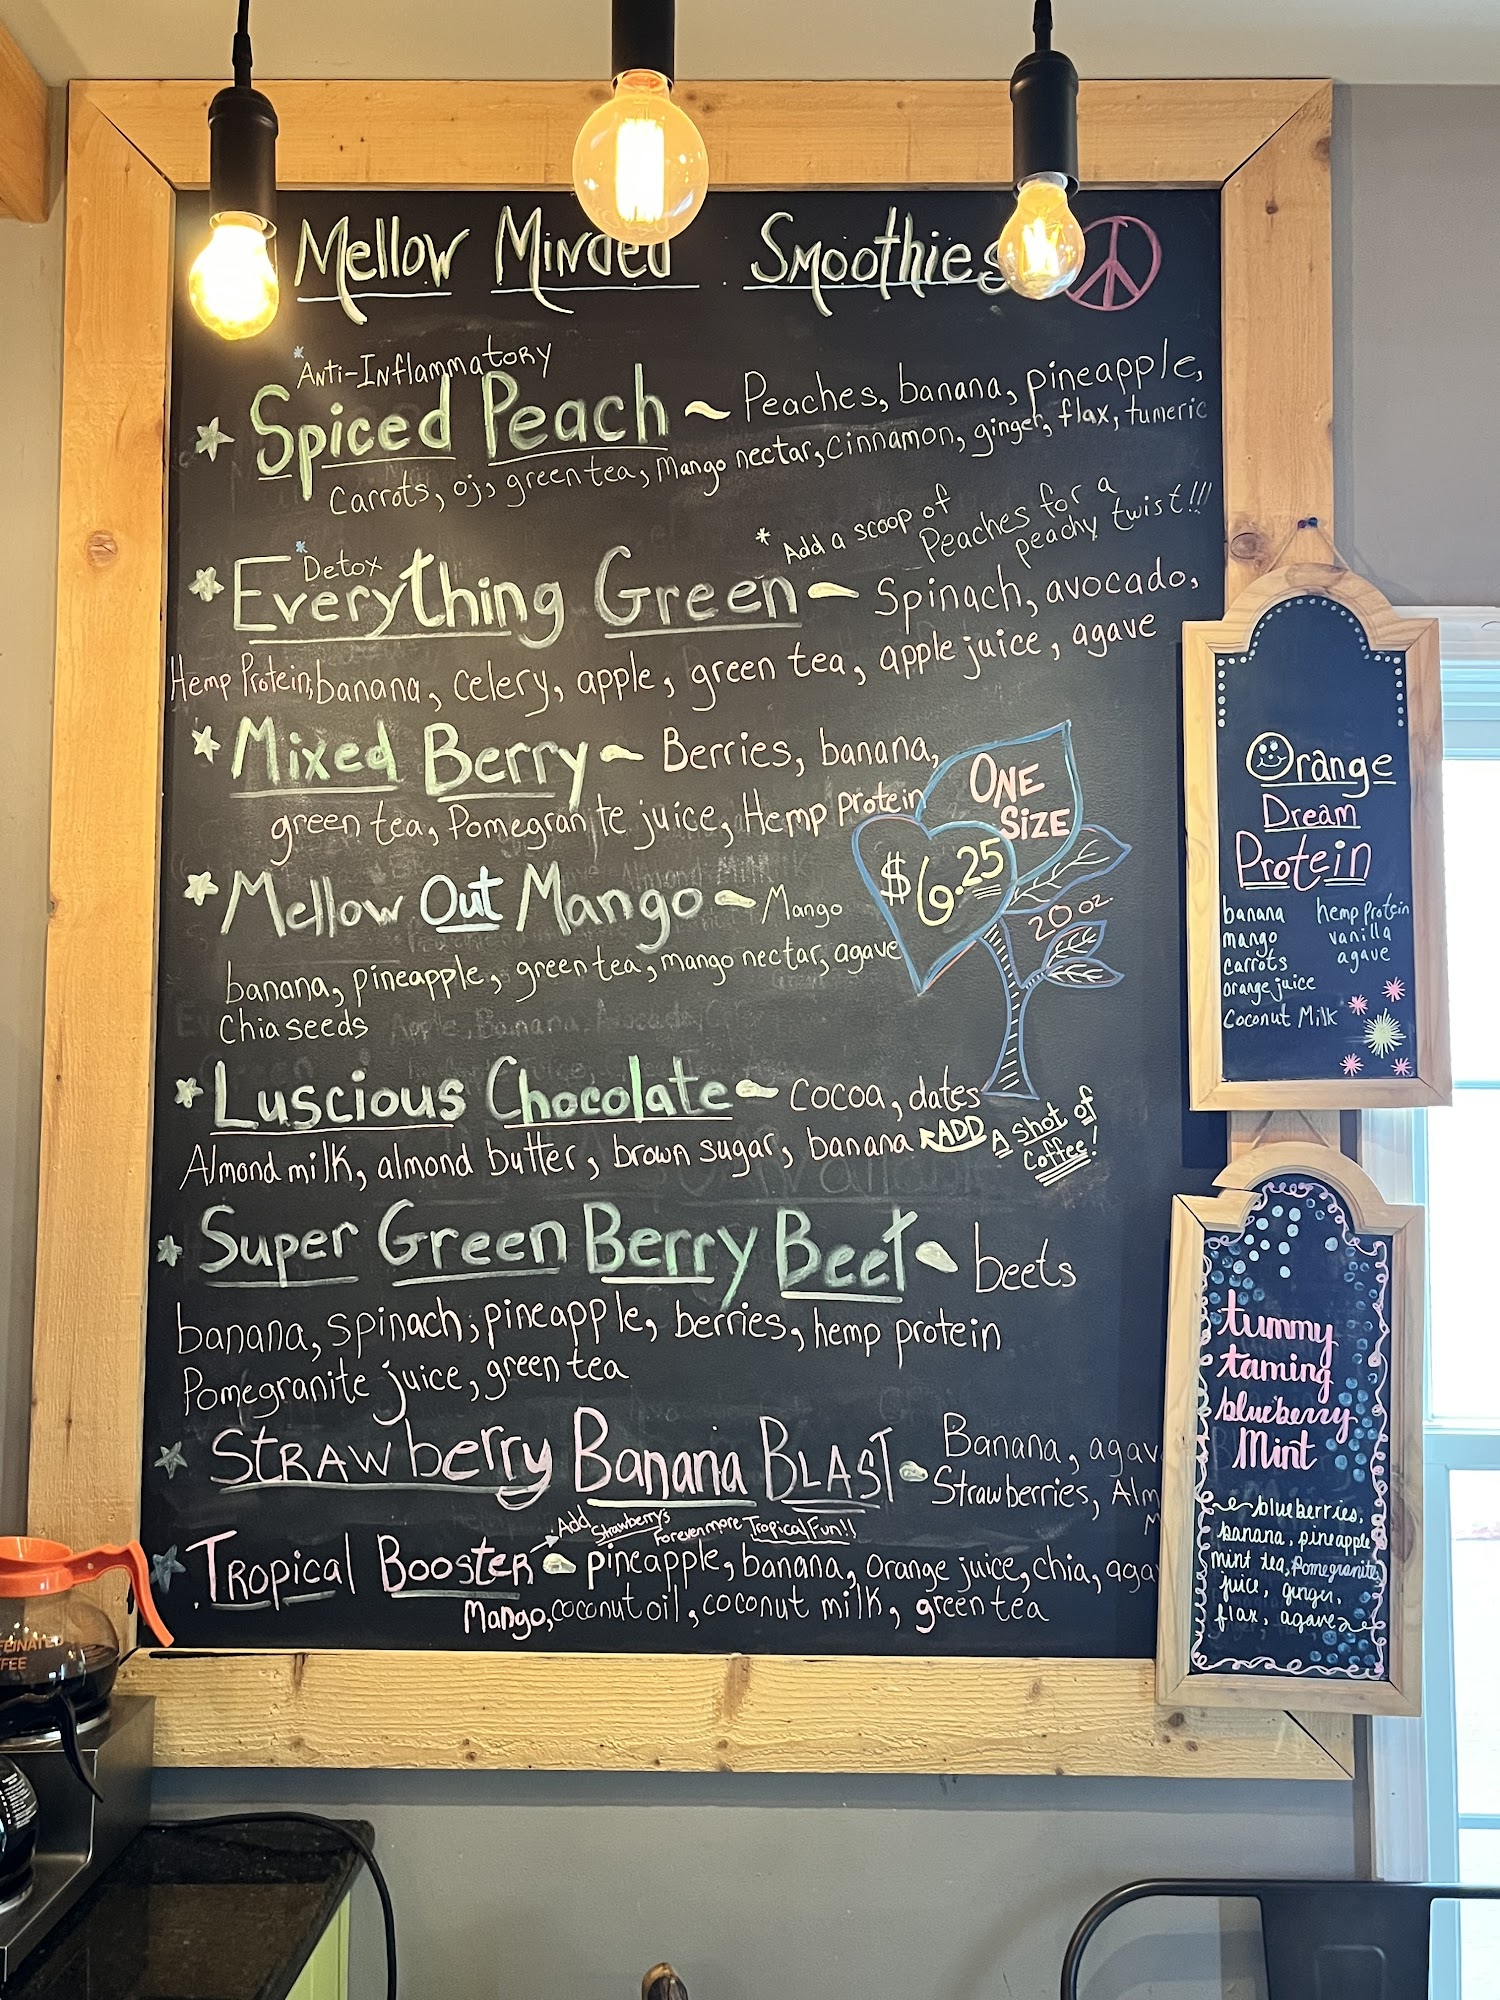 Mellow Minded Smoothies
*Anti-Inflammatory
Spiced Peach ~ Peaches, banana, pineapple,
Carrots, oj, green tea, Mango nectar, cinnamon, ginger, flax, tumeric
* Add a scoop of
Peaches for a
peachy twist!!!
*Detox
Everything Green ~ Spinach, avocado,
Hemp Protein, banana, celery, apple, green tea, apple juice, agave
Mixed Berry ~ Berries, banana,
green tea, Pomegranite juice, Hemp protein
ONE
SIZE
$6.25
20 oz.
Mellow Out Mango ~ Mango
banana, pineapple, green tea, mango nectar, agave
Chia seeds
Luscious Chocolate ~ cocoa, dates
Almond milk, almond butter, brown sugar, banana
ADD A shot of
coffee!
Super Green Berry Beet ~ beets
banana, spinach, pineapple, berries, hemp protein
Pomegranite juice, green tea
Strawberry Banana Blast ~ Banana, agav
Strawberries, Alm
M
Add Strawberrys
Forevenmore Tropical Fun!!
Tropical Booster ~ pineapple, banana, orange juice, chia, aga
Mango, coconut oil, coconut milk, green tea
Orange
Dream
Protein
banana
mango
carrots
orange juice
Coconut Milk
hemp protein
vanilla
agave
tummy
taming
blueberry
Mint
~blueberries,
banana, pineapple
mint tea, Pomegranite
juice, ginger,
flax, agave~
FEINAT
FEE